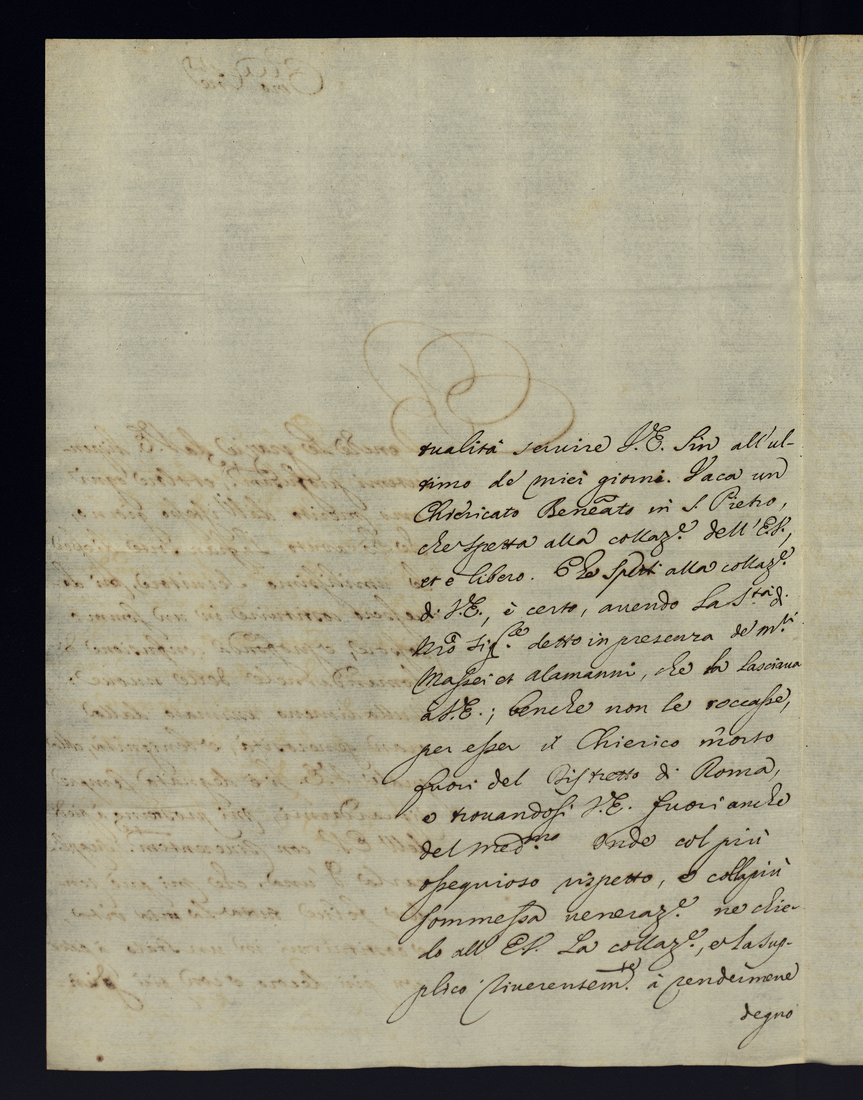 tualità seruire V.E. sin all'ul-
timo de' miei giorni. Vaca un
Chiericato Beneficiato in S. Pietro,
che spetta alla collaz.e dell'E.V.,
et è libero. Che spetti alla collaz.e
di V.E., è certo, auendo la S.tà di
Nrõ Sig.re detto in presenza de' m.ri
Massei et Alamanni, che la lasciaua
à V.E.; benche non le toccasse,
per esser il Chierico morto
fuori del Distretto di Roma,
e trouandosi V.E. fuori anche
del med.mo Onde col più
ossequioso rispetto, e colla più
sommessa ueneraz.e ne chie-
do all'E.V. la collaz.e, e la sup-
plico riuerentem.te à rendermene
degno